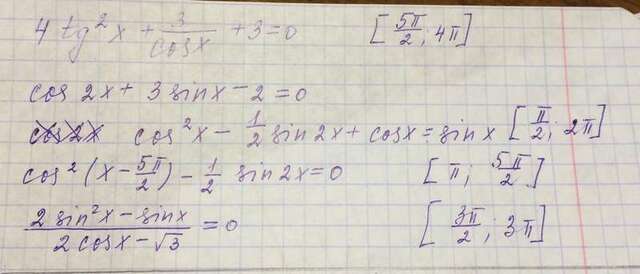 4 tg²x + 3/cosx + 3 = 0 [5π/2; 4π]
cos 2x + 3 sinx - 2 = 0
cos 2x cos²x - 1/2 sin2x + cosx = sinx [π/2; 2π]
cos²(x - 5π/2) - 1/2 sin2x = 0 [π; 5π/2]
(2 sin²x - sinx)/(2 cosx - √3) = 0 [3π/2; 3π]